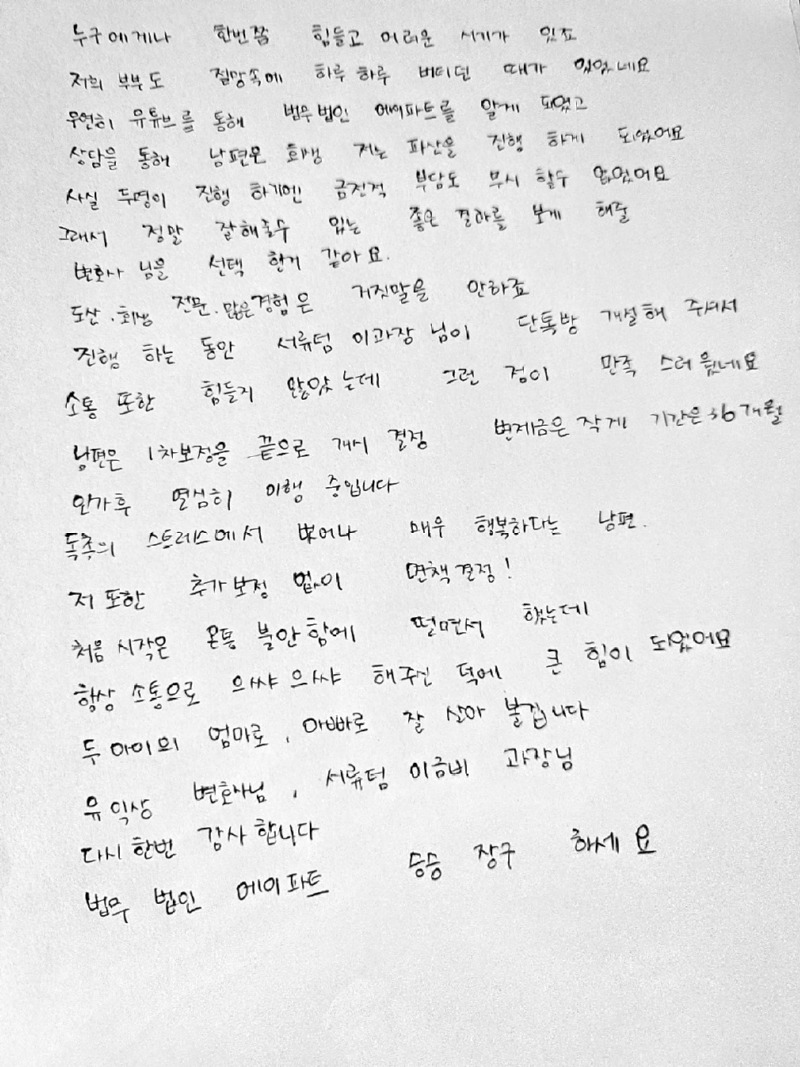 누구에게나 한번쯤 힘들고 어려운 시기가 있죠
저희 부부도 절망속에 하루하루 버티던 때가 있었네요
우연히 유튜브를 통해 법무법인 에이파트를 알게 되었고
상담을 통해 남편은 회생 저는 파산을 진행 하게 되었어요
사실 두명이 진행 하기엔 금전적 부담도 무시 할수 없었어요
그래서 정말 잘해줄수 있는 좋은 결과를 보게 해줄
변호사 님을 선택 한거 같아요.
도산.회생 전문.많은경험은 거짓말을 안하죠
진행 하는 동안 서류텀 이과장 님이 단톡방 개설해 주셔서
소통 또한 힘들지 않았는데 그런 점이 만족 스러웠네요
남편은 1차보정을 끝으로 개시 결정 변제금은 작게 기간은 36개월
인가후 열심히 이행 중입니다
독촉의 스트레스에서 벗어나 매우 행복하다는 남편.
저 또한 추가보정 없이 면책결정!
처음 시작은 온통 불안함에 떨면서 했는데
항상 소통으로 으쌰으쌰 해주신 덕에 큰 힘이 되었어요
두아이의 엄마로, 아빠로 잘 살아 볼겁니다
유익상 변호사님, 서류텀 이금비 과장님
다시한번 감사합니다
법무 법인 에이파트 승승 장구 하세요